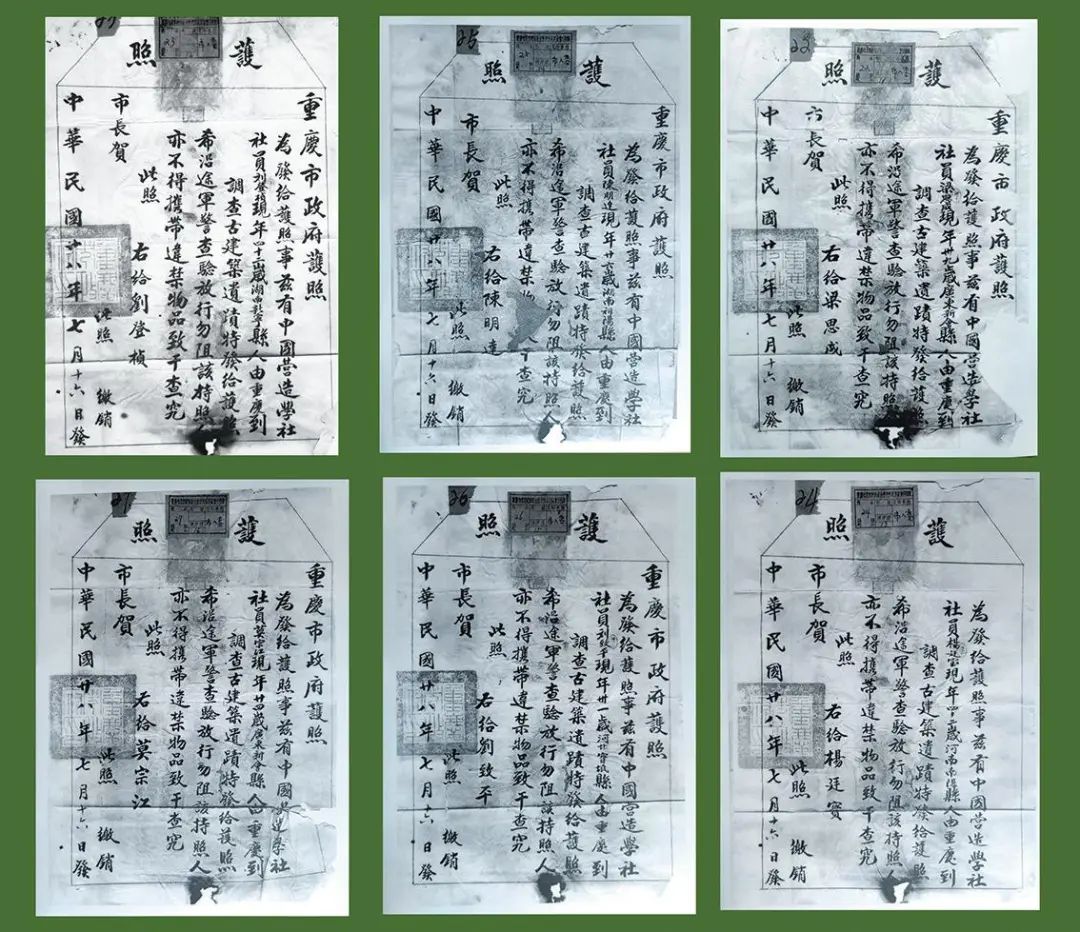 23
護照
重慶市政府護照
為發給護照事茲有中國營造學社
社員劉敦楨現年四十二歲湖南新寧縣人由重慶到
調查古建築遺蹟特發給護照
希沿途軍警查驗放行勿阻該持照人
亦不得携帶違禁物品致干查究
此照
右給劉敦楨
市長賀
此照 繳銷
中華民國廿八年七月十六日發
25
護照
重慶市政府護照
為發給護照事茲有中國營造學社
社員陳明達現年廿六歲湖南祁陽縣人由重慶到
調查古建築遺蹟特發給護照
希沿途軍警查驗放行勿阻該持照人
亦不得携帶違禁物 干查究
此照
右給陳明達
市長賀
此照 繳銷
中華民國廿八年七月十六日發
22
護照
重慶市政府護照
為發給護照事茲有中國營造學社
社員梁思成現年卅九歲廣東新會縣人由重慶到
調查古建築遺蹟特發給護照
希沿途軍警查驗放行勿阻該持照人
亦不得携帶違禁物品致干查究
此照
右給梁思成
市長賀
此照 繳銷
中華民國廿八年七月十六日發
27
護照
重慶市政府護照
為發給護照事茲有中國營造學社
社員莫宗江現年廿四歲廣東新會縣人由重慶到
調查古建築遺蹟特發給護照
希沿途軍警查驗放行勿阻該持照人
亦不得携帶違禁物品致干查究
此照
右給莫宗江
市長賀
此照 繳銷
中華民國廿八年七月十六日發
26
護照
重慶市政府護照
為發給護照事茲有中國營造學社
社員劉致平現年卅一歲河北 縣人由重慶到
調查古建築遺蹟特發給護照
希沿途軍警查驗放行勿阻該持照人
亦不得携帶違禁物品致干查究
此照
右給劉致平
市長賀
此照 繳銷
中華民國廿八年七月十六日發
24
護照
重慶市政府護照
為發給護照事茲有中國營造學社
社員楊廷寶現年四十歲河南南陽縣人由重慶到
調查古建築遺蹟特發給護照
希沿途軍警查驗放行勿阻該持照人
亦不得携帶違禁物品致干查究
此照
右給楊廷寶
市長賀
此照 繳銷
中華民國廿八年七月十六日發